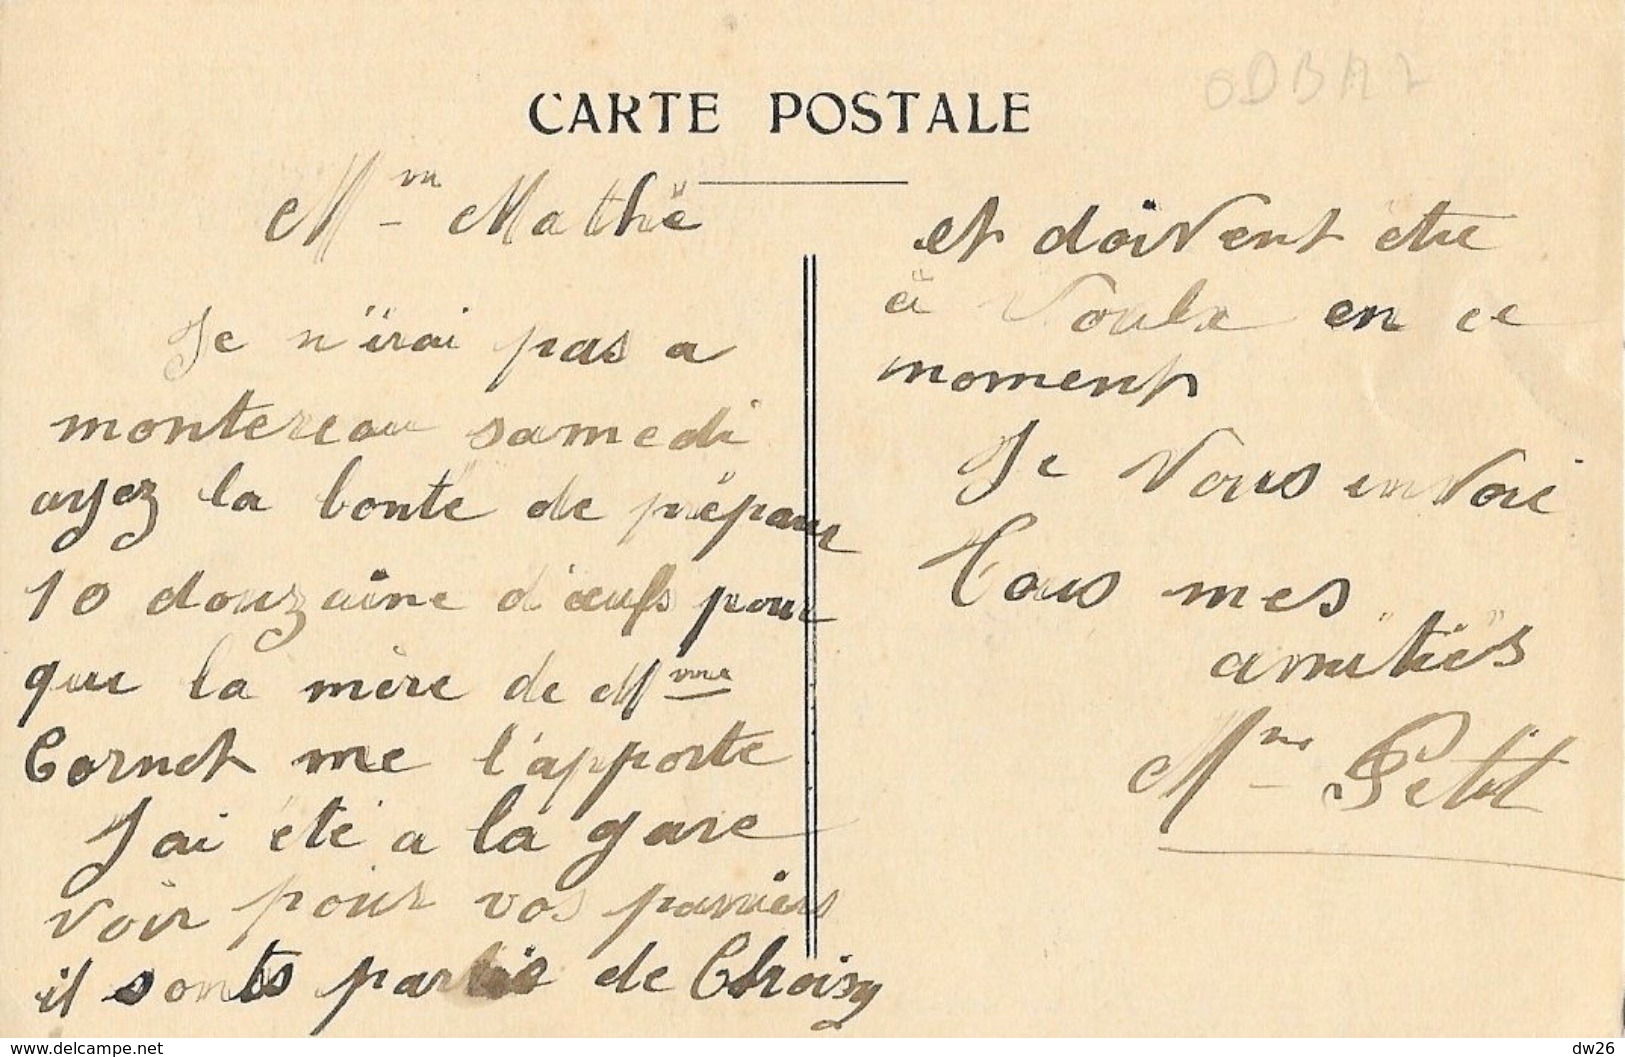 ODBA7
CARTE POSTALE
Mme Mathé
Je n'irai pas a
montereau samedi
ayez la bonté de préparer
10 douzaine d'œufs pour
que la mère de Mme
Cornet me l'apporte
J'ai été a la gare
voir pour vos paniers
il sonts partis de Choisy
et doivent être
à Voulx en ce
moment
Je vous envoie
tous mes
amitiés
Mme Petit
delcampe.net
dw26